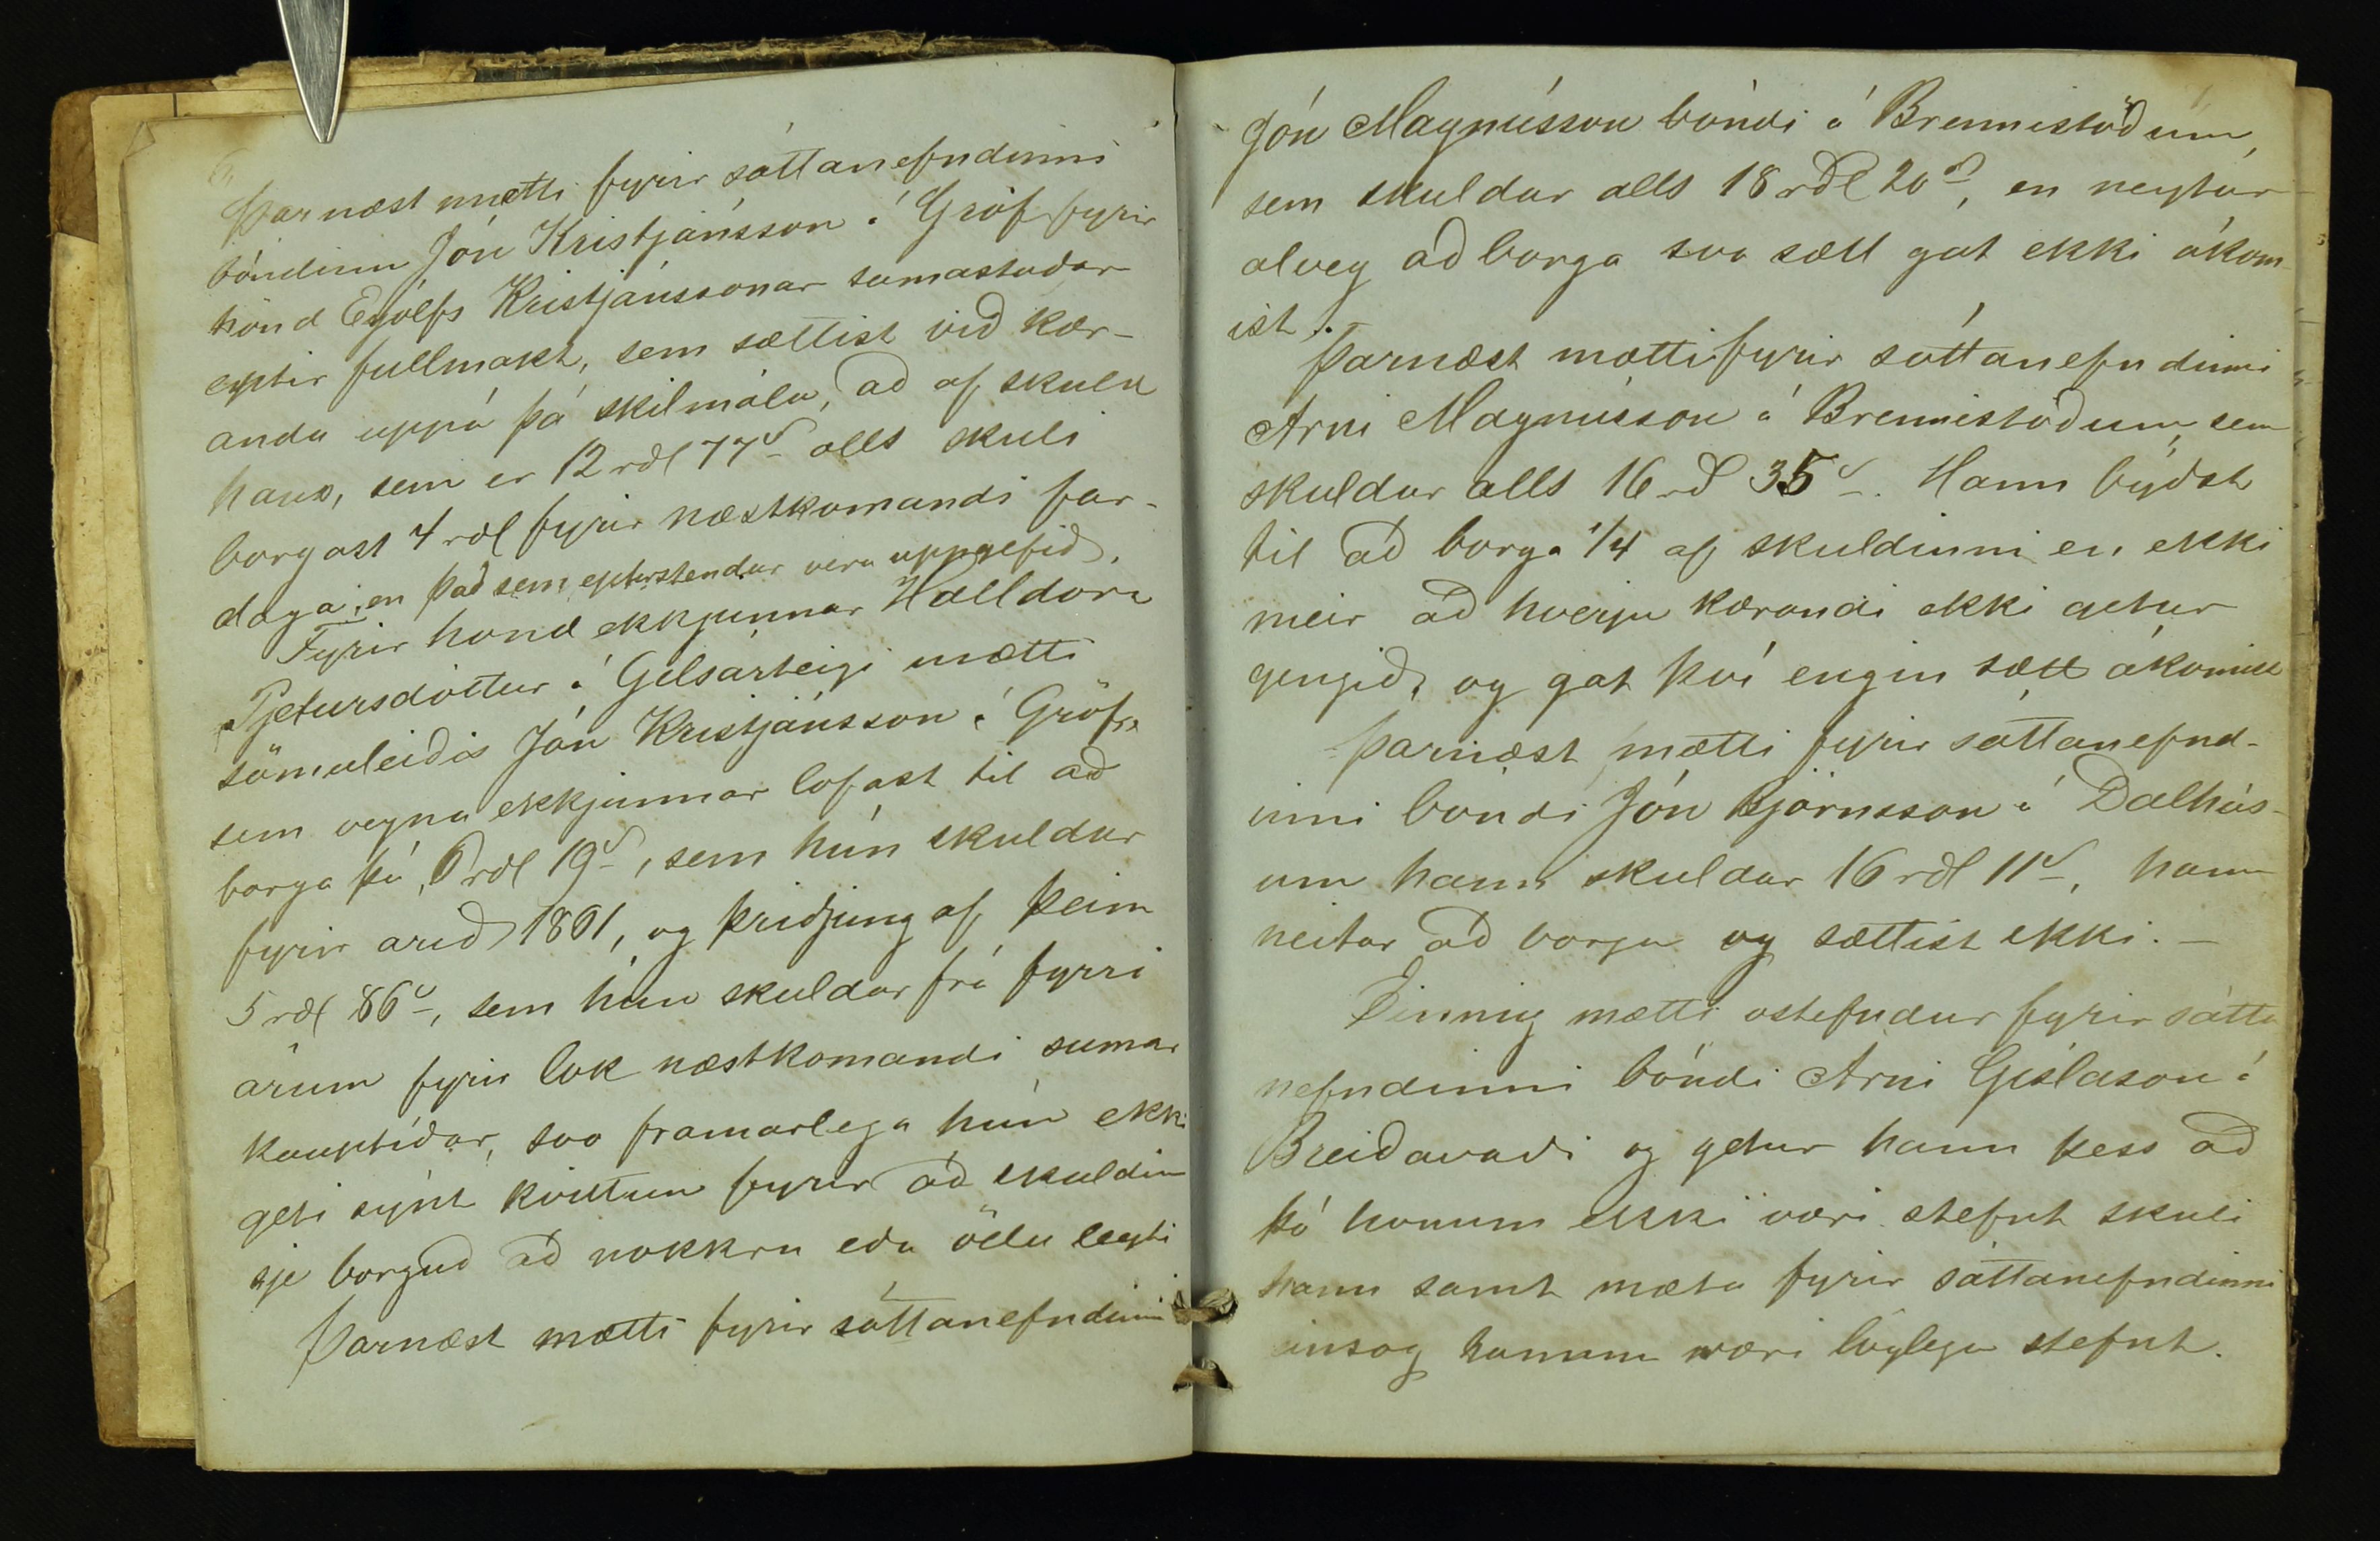 Þarnæst mætti fyrir sáttanefndinni
bóndinn Jón Kristjánsson í Gröf fyrir
hönd Eyólfs Kristjánssonar samastaðar
eptir fullmakt, sem sættist við kær-
anda uppá þá skilmála, að af skuld
hans, sem er 12 rdl 77 s alls skuli
borgast 4 rdl fyrir næstkomandi far-
daga, en það sem eptirstendur vera uppgefið.
Fyrir hönd ekkjunnar Halldóru
Pjetursdóttur í Gilsárteigi mætti
sömuleiðis Jón Kristjánsson í Gröf,
sem vegna ekkjunnar lofast til að
borga þá 6 rdl 19 s, sem hún skuldar
fyrir árið 1861, og þriðjung af þeim
5 rdl 86 s, sem hún skuldar frá fyrri
árum fyrir lok næstkomandi sumar
kauptíðar, svo framarlega hún ekki
geti sýnt kvittun fyrir að skuldin
sje borguð að nokkru eða öllu leyti
Þarnæst mætti fyrir sáttanefndinni
Jón Magnússon bóndi á Brennistöðum,
sem skuldar alls 18 rdl 20 s, en neytar
alveg að borga svo sætt gat ekki ákom-
ist.
Þarnæst mætti fyrir sáttanefndinni
Árni Magnússon á Brennistöðum, sem
skuldar alls 16 rd 35 s. Hann býðst
til að borga 1/4 af skuldinni en ekki
meir að hverju kærandi ekki getur
gengið, og gat því engin sætt ákomist
Þarnæst mætti fyrir sáttanefnd-
inni bóndi Jón Björnsson á Dalhús-
um hann skuldar 16 rdl 11 s, hann
neitar að borga og sættist ekki. —
Einnig mætti óstefndur fyrir sátta
nefndinni bóndi Árni Gíslason á
Breiðavaði og getur hann þess að
þó honum ekki væri stefnt skuli
hann samt mæta fyrir sáttanefndinni
einsog honum væri löglega stefnt.